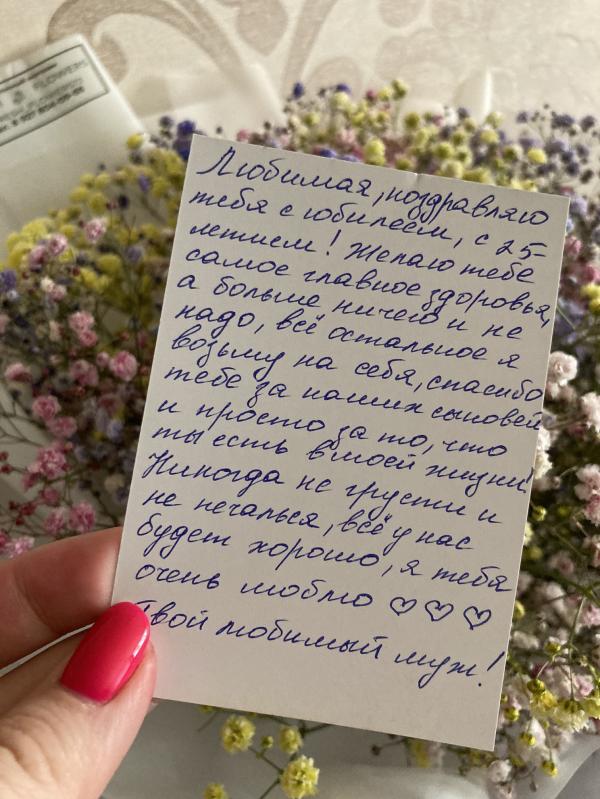 FLOWERS
Любимая, поздравляю
тебя с юбилеем, с 25-
летием! Желаю тебе
самое главное здоровья,
а больше ничего и не
надо, всё остальное я
возьму на себя, спасибо
тебе за наших сыновей
и просто за то, что
ты есть в моей жизни!
Никогда не грусти и
не печалься, всё у нас
будет хорошо, я тебя
очень люблю ♡♡♡
Твой любимый муж!